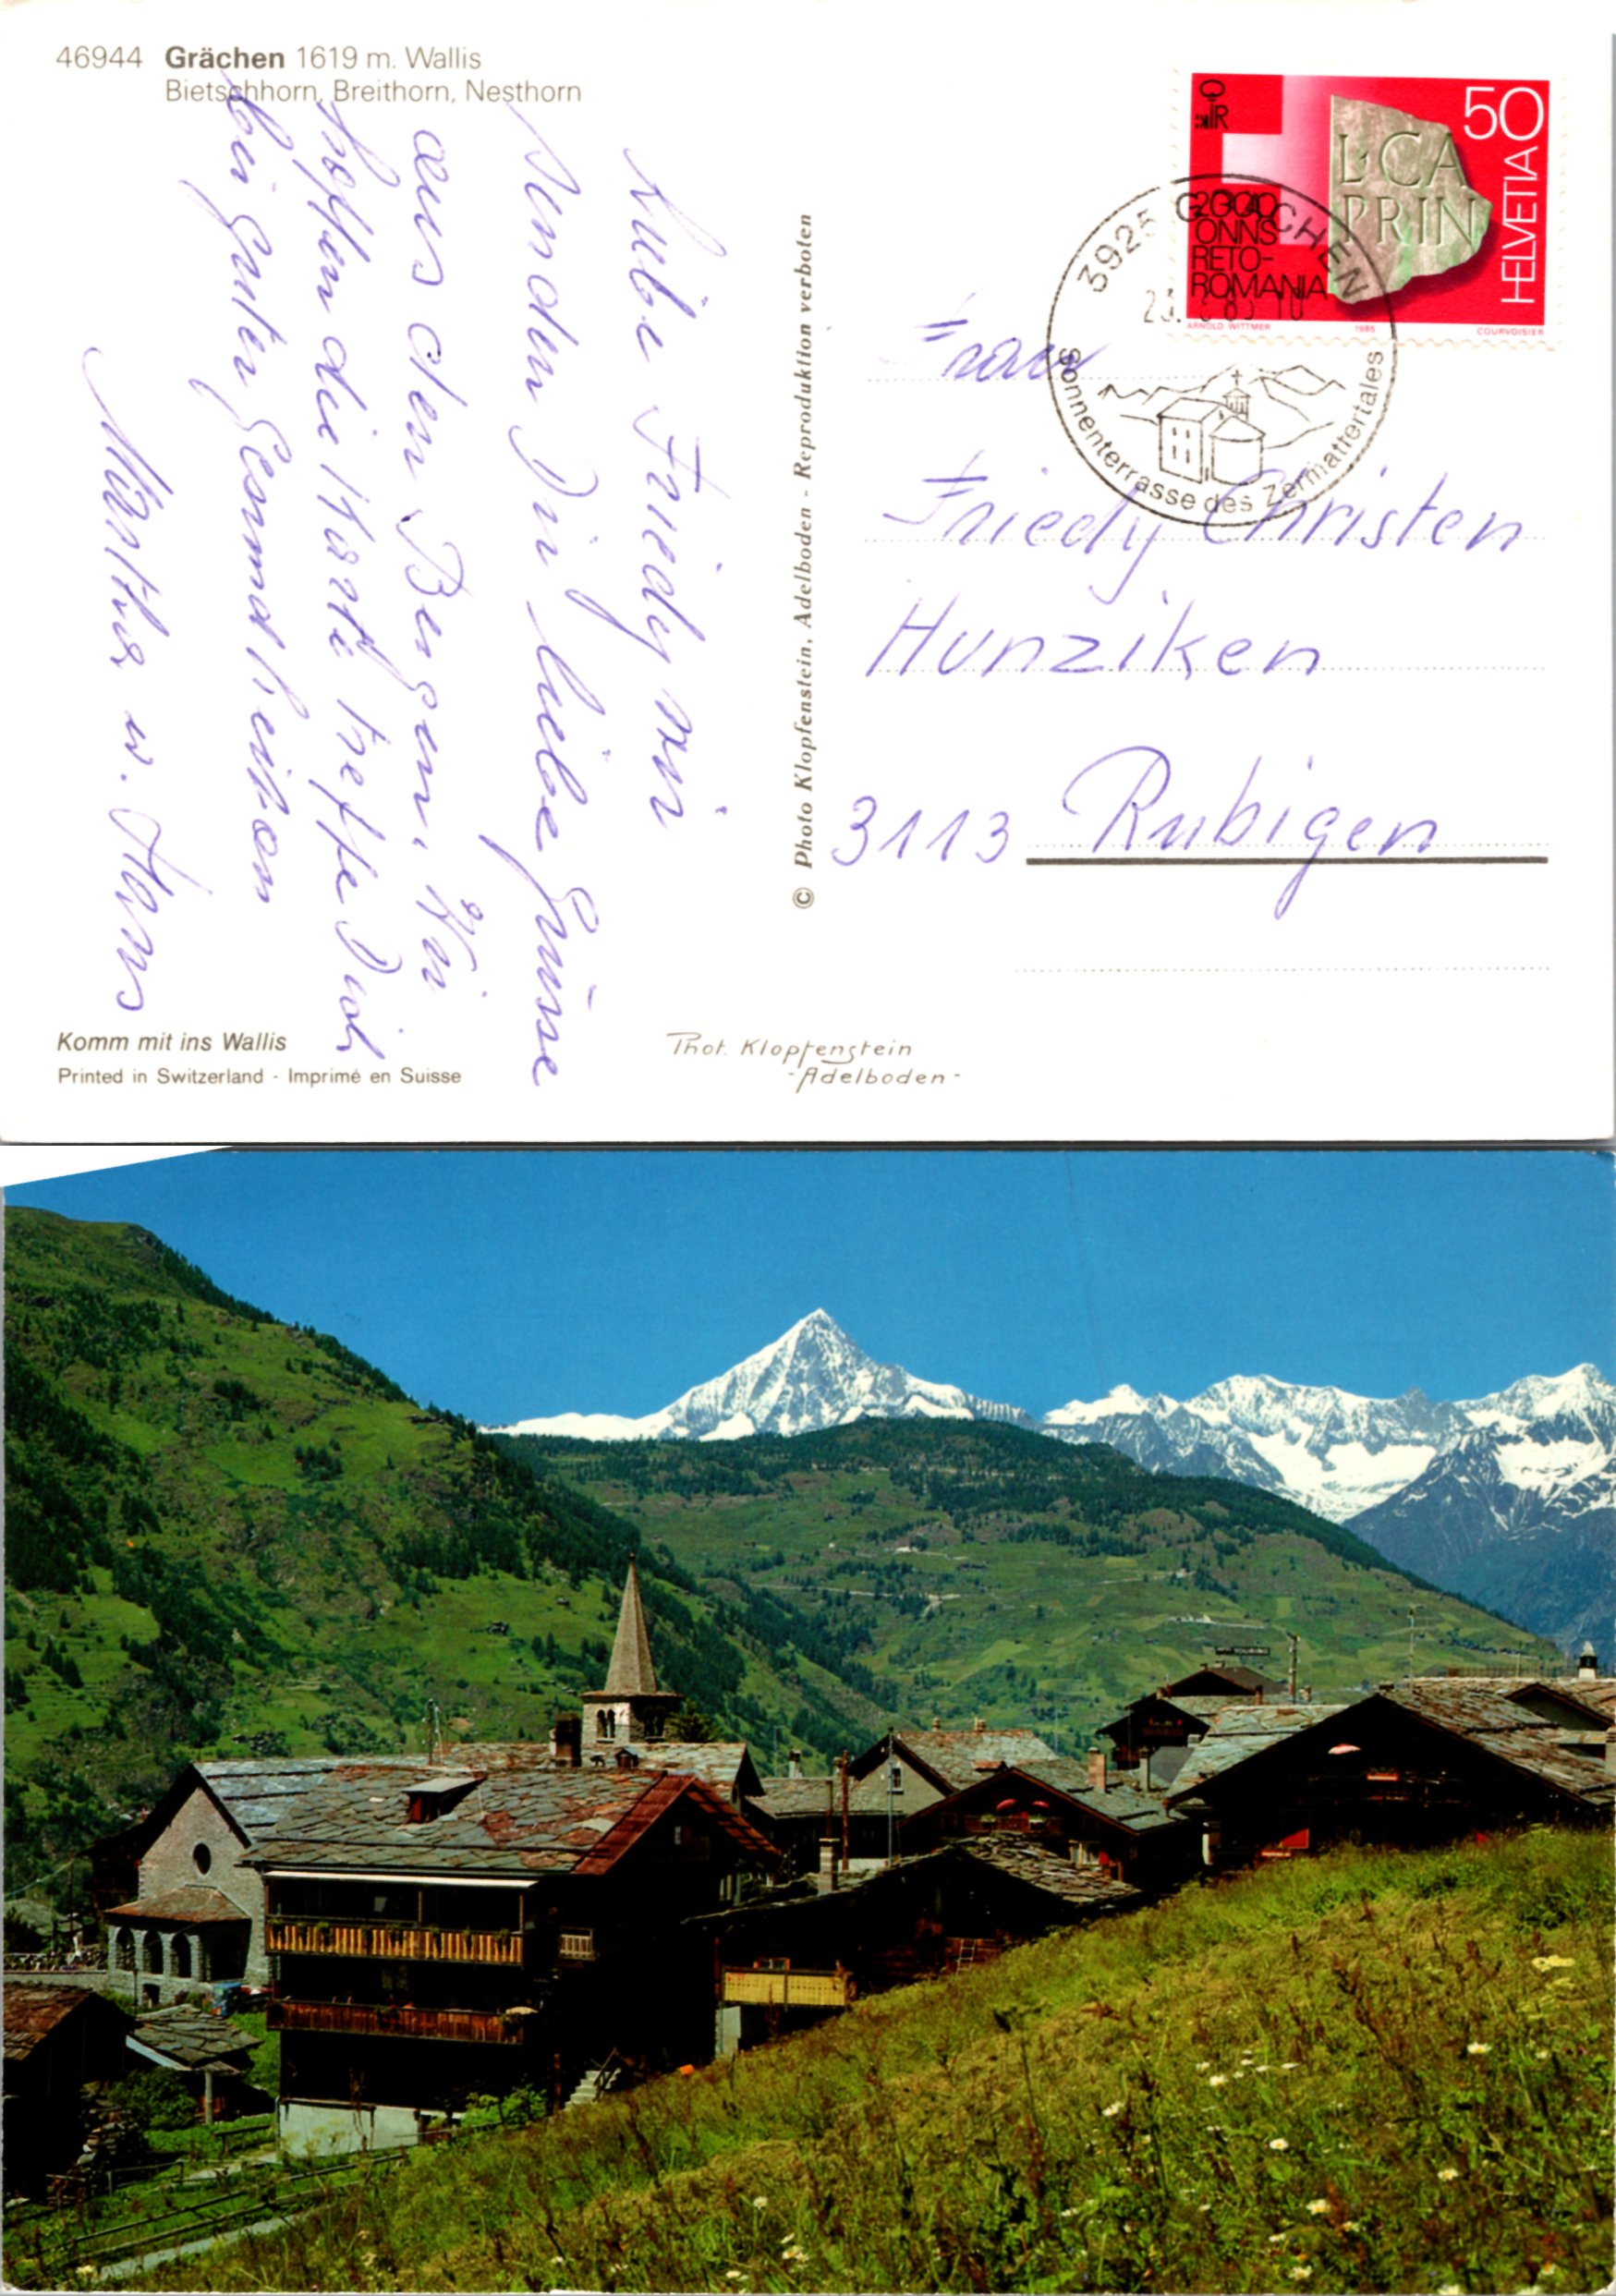 46944 Grächen 1619 m. Wallis
Bietschhorn, Breithorn, Nesthorn
Liebe Friedy wir
senden Dir liebe Grüsse
aus den Bergen. Wir
hoffen die Karte treffe Dich
bei guter Gesundheit an
Martha u. Hans
Komm mit ins Wallis
Printed in Switzerland - Imprimé en Suisse
© Photo Klopfenstein, Adelboden - Reproduktion verboten
Phot. Klopfenstein
-Adelboden-
50
HELVETIA
L·CA
PRIN
2000
ONNS
RETO-
ROMANIA
ARNOLD WITTMER 1985 COURVOISIER
3925 GRÄCHEN
Sonnenterrasse des Zermattertales
Frau
Friedy Christen
Hunziken
3113 Rubigen
TOURING